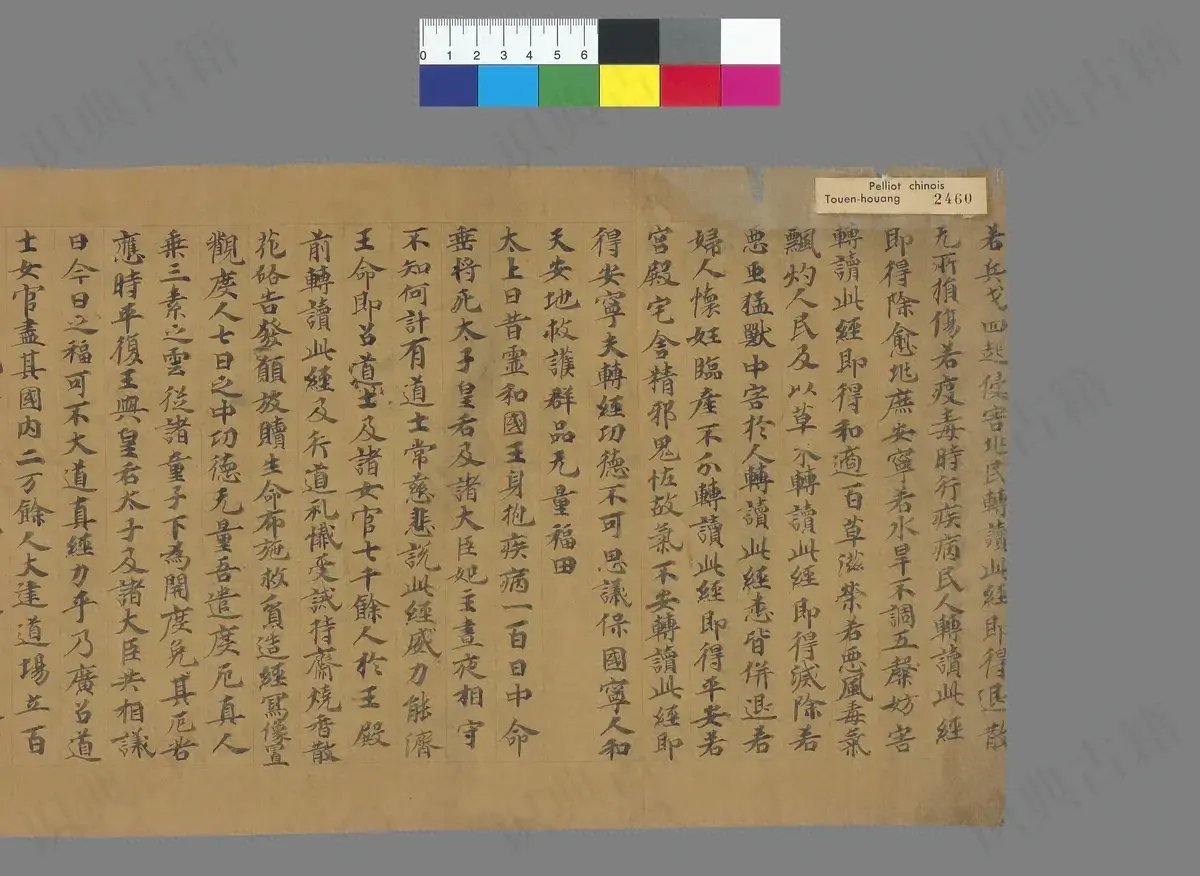 Pelliot chinois
Touen-houang 2460
0 1 2 3 4 5 6
若兵戈四起侵害兆民轉讀此經即得退散
无所損傷若疫毒時行疾病民人轉讀此經
即得除愈兆庶安寧若水旱不調五穀妨害
轉讀此經即得和適百草滋榮若惡風毒氣
飄灼人民及以草木轉讀此經即得滅除若
惡虫猛獸中害於人轉讀此經悉皆併退若
婦人懷妊臨產不分轉讀此經即得平安若
宮殿宅舍精邪鬼怪故氣不安轉讀此經即
得安寧夫轉經功德不可思議保國寧人和
天安地救護群品无量福田
太上曰昔靈和國王身抱疾病一百日中命
垂將死太子皇后及諸大臣妃主晝夜相守
不知何計有道士常慈悲說此經威力能濟
王命即召道士及諸女官七千餘人於王殿
前轉讀此經及行道礼懺受誡持齋燒香散
花啓告發願放贖生命布施救貧造經寫像置
觀度人七日之中功德无量吾遣度厄真人
乗三素之雲從諸童子下為開度免其厄若
應時平復王與皇后太子及諸大臣共相議
曰今日之福可不大道真經力乎乃廣召道
士女官盡其國內二万餘人大建道場立百
識典古籍